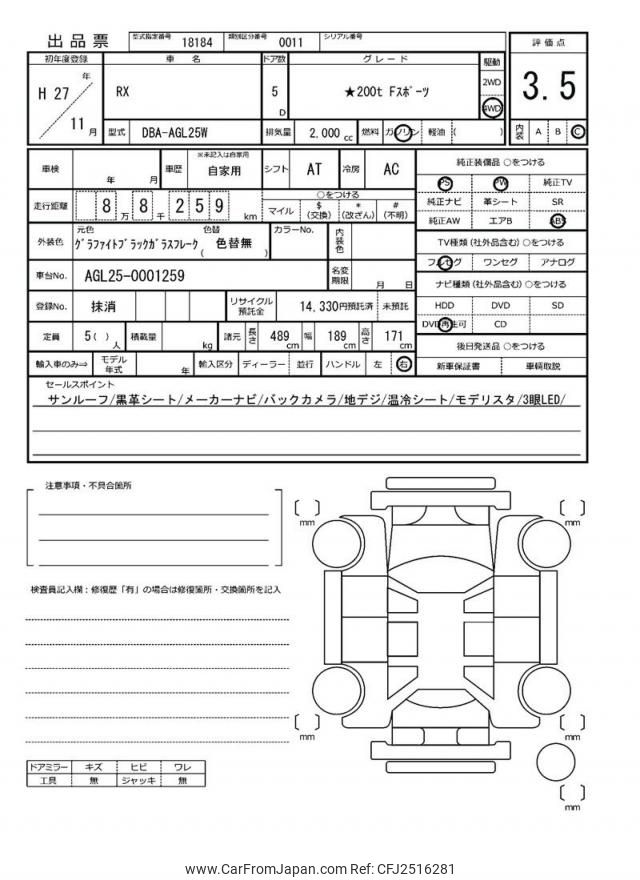 出品票 型式指定番号 18184 類別区分番号 0011 シリアル番号
初年度登録 車名 ドア数 グレード 駆動 評価点
H 27 年 11 月 RX 5 D ★200t Fスポーツ 2WD 4WD 3.5
型式 DBA-AGL25W 排気量 2,000 cc 燃料 ガソリン 軽油 ( ) 内装 A B C
車検 年 月 車歴 ※未記入は自家用 自家用 シフト AT 冷房 AC
走行距離 8 万 8 千 2 5 9 km ○をつける マイル $ (交換) * (改ざん) # (不明)
外装色 元色 グラファイトブラックガラスフレーク 色替 ( 色替無 ) カラーNo. 内装色
車台No. AGL25-0001259 名変期限 月 日
登録No. 抹消 リサイクル預託金 14,330円預託済 未預託
定員 5( ) 人 積載量 kg 諸元 長さ 489 cm 幅 189 cm 高さ 171 cm
輸入車のみ⇒ モデル年式 年 輸入区分 ディーラー 並行 ハンドル 左 右
純正装備品 ○をつける
PS PW 純正TV
純正ナビ 革シート SR
純正AW エアB ABS
TV種類 (社外品含む) ○をつける
フルセグ ワンセグ アナログ
ナビ種類 (社外品含む) ○をつける
HDD DVD SD
DVD再生可 CD
後日発送品 ○をつける
新車保証書 車輌取説
セールスポイント
サンルーフ/黒革シート/メーカーナビ/バックカメラ/地デジ/温冷シート/モデリスタ/3眼LED/
注意事項・不具合箇所
検査員記入欄：修復歴「有」の場合は修復箇所・交換箇所を記入
mm
mm
mm
mm
mm
ドアミラー キズ ヒビ ワレ
工具 無 ジャッキ 無
www.CarFromJapan.com Ref: CFJ2516281